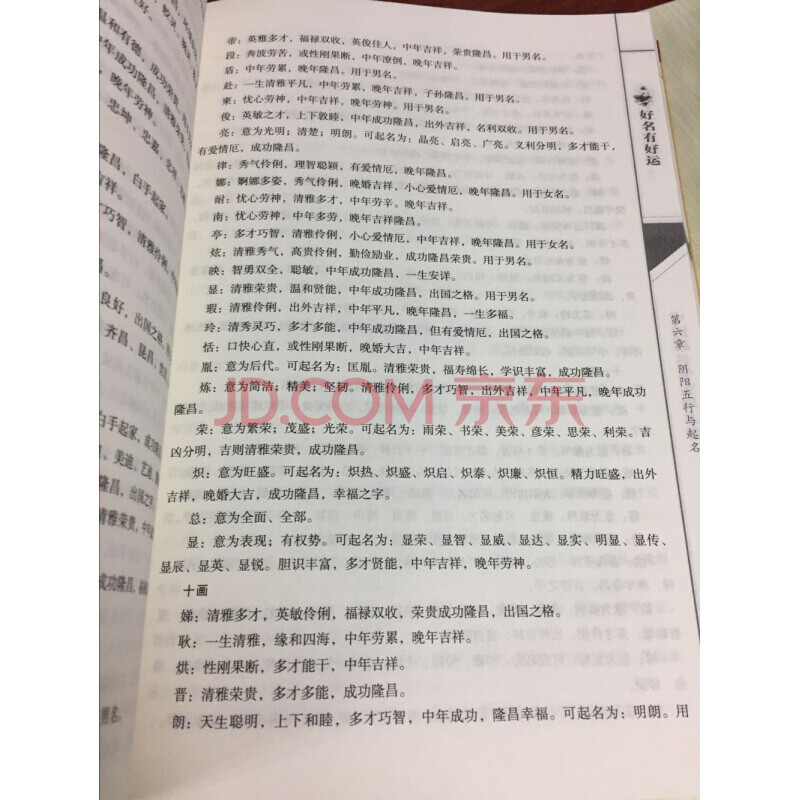 温和有德，成功荣贵，
年成功隆昌，清雅荣
，晚年劳神。
白手起家，
良好，出国之格，
齐昌、昆昌、
白手起家，成功
、美迪、艺迪、
隆昌，出国之字。
清雅荣贵，中年
成功隆昌，
男名。
帝：英雅多才，福禄双收，英俊佳人，中年吉祥，荣贵隆昌。用于男名。
段：奔波劳苦，或性刚果断，中年潦倒，晚年吉祥。
盾：中年劳累，晚年隆昌。用于男名。
赴：一生清雅平凡，中年劳累，晚年吉祥，子孙隆昌。用于男名。
柬：忧心劳神，中年吉祥，晚年劳神。用于男名。
俊：英敏之才，上下敦睦，中年成功隆昌，出外吉祥，名利双收。用于男名。
亮：意为光明；清楚；明朗。可起名为：晶亮、启亮、广亮。义利分明，多才能干，
有爱情厄，成功隆昌。
律：秀气伶俐，理智聪颖，有爱情厄，晚年隆昌。
娜：婀娜多姿，秀气伶俐，晚婚吉祥，小心爱情厄，晚年隆昌。用于女名。
耐：忧心劳神，清雅多才，中年劳辛。晚年吉祥。
南：忧心劳神，中年多劳，晚年吉祥隆昌。
亭：多才巧智，清雅伶俐，小心爱情厄，中年吉祥，晚年隆昌。用于女名。
炫：清雅秀气，高贵伶俐，勤俭励业，成功隆昌荣贵。用于男名。
映：智勇双全，聪敏，中年成功隆昌，一生安详。
显：清雅荣贵，温和贤能，中年成功隆昌，出国之格。用于男名。
瑕：清雅伶俐，出外吉祥，中年平凡，晚年隆昌，一生多福。
玲：清秀灵巧，多才多能，中年成功隆昌，但有爱情厄，出国之格。
恬：口快心直，或性刚果断，晚婚大吉，中年吉祥。
胤：意为后代。可起名为：匡胤。清雅荣贵，福寿绵长，学识丰富，成功隆昌。
炼：意为简洁；精美；坚韧。清雅伶俐，多才巧智，出外吉祥，中年平凡，晚年成功
隆昌。
荣：意为繁荣；茂盛；光荣。可起名为：雨荣、书荣、美荣、彦荣、思荣、利荣。吉
凶分明，吉则清雅荣贵，成功隆昌。
炽：意为旺盛。可起名为：炽热、炽盛、炽启、炽泰、炽廉、炽恒。精力旺盛，出外
吉祥，晚婚大吉，成功隆昌，幸福之字。
总：意为全面、全部。
显：意为表现；有权势。可起名为：显荣、显智、显威、显达、显实、明显、显传、
显辰、显英、显锐。胆识丰富，多才贤能，中年吉祥，晚年劳神。
十画
娣：清雅多才，英敏伶俐，福禄双收，荣贵成功隆昌，出国之格。
耿：一生清雅，缘和四海，中年劳累，晚年吉祥。
烘：性刚果断，多才能干，中年吉祥。
晋：清雅荣贵，多才多能，成功隆昌。
朗：天生聪明，上下和睦，多才巧智，中年成功，隆昌幸福。可起名为：明朗。用
好名有好运
第六章 阴阳五行与起名
JD.COM 京东